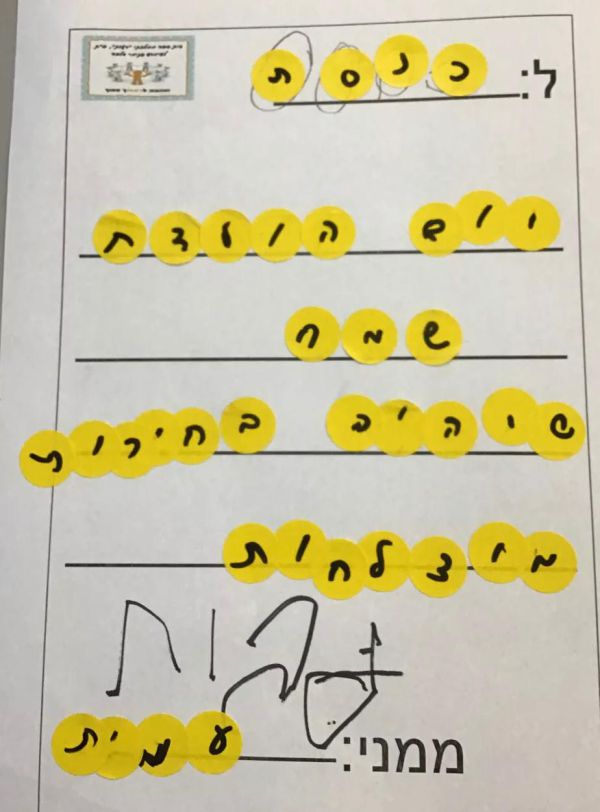 ל: כנסת
יום הולדת
שמח
שיהיב בחירות
מוצלחות
ממני: עמית